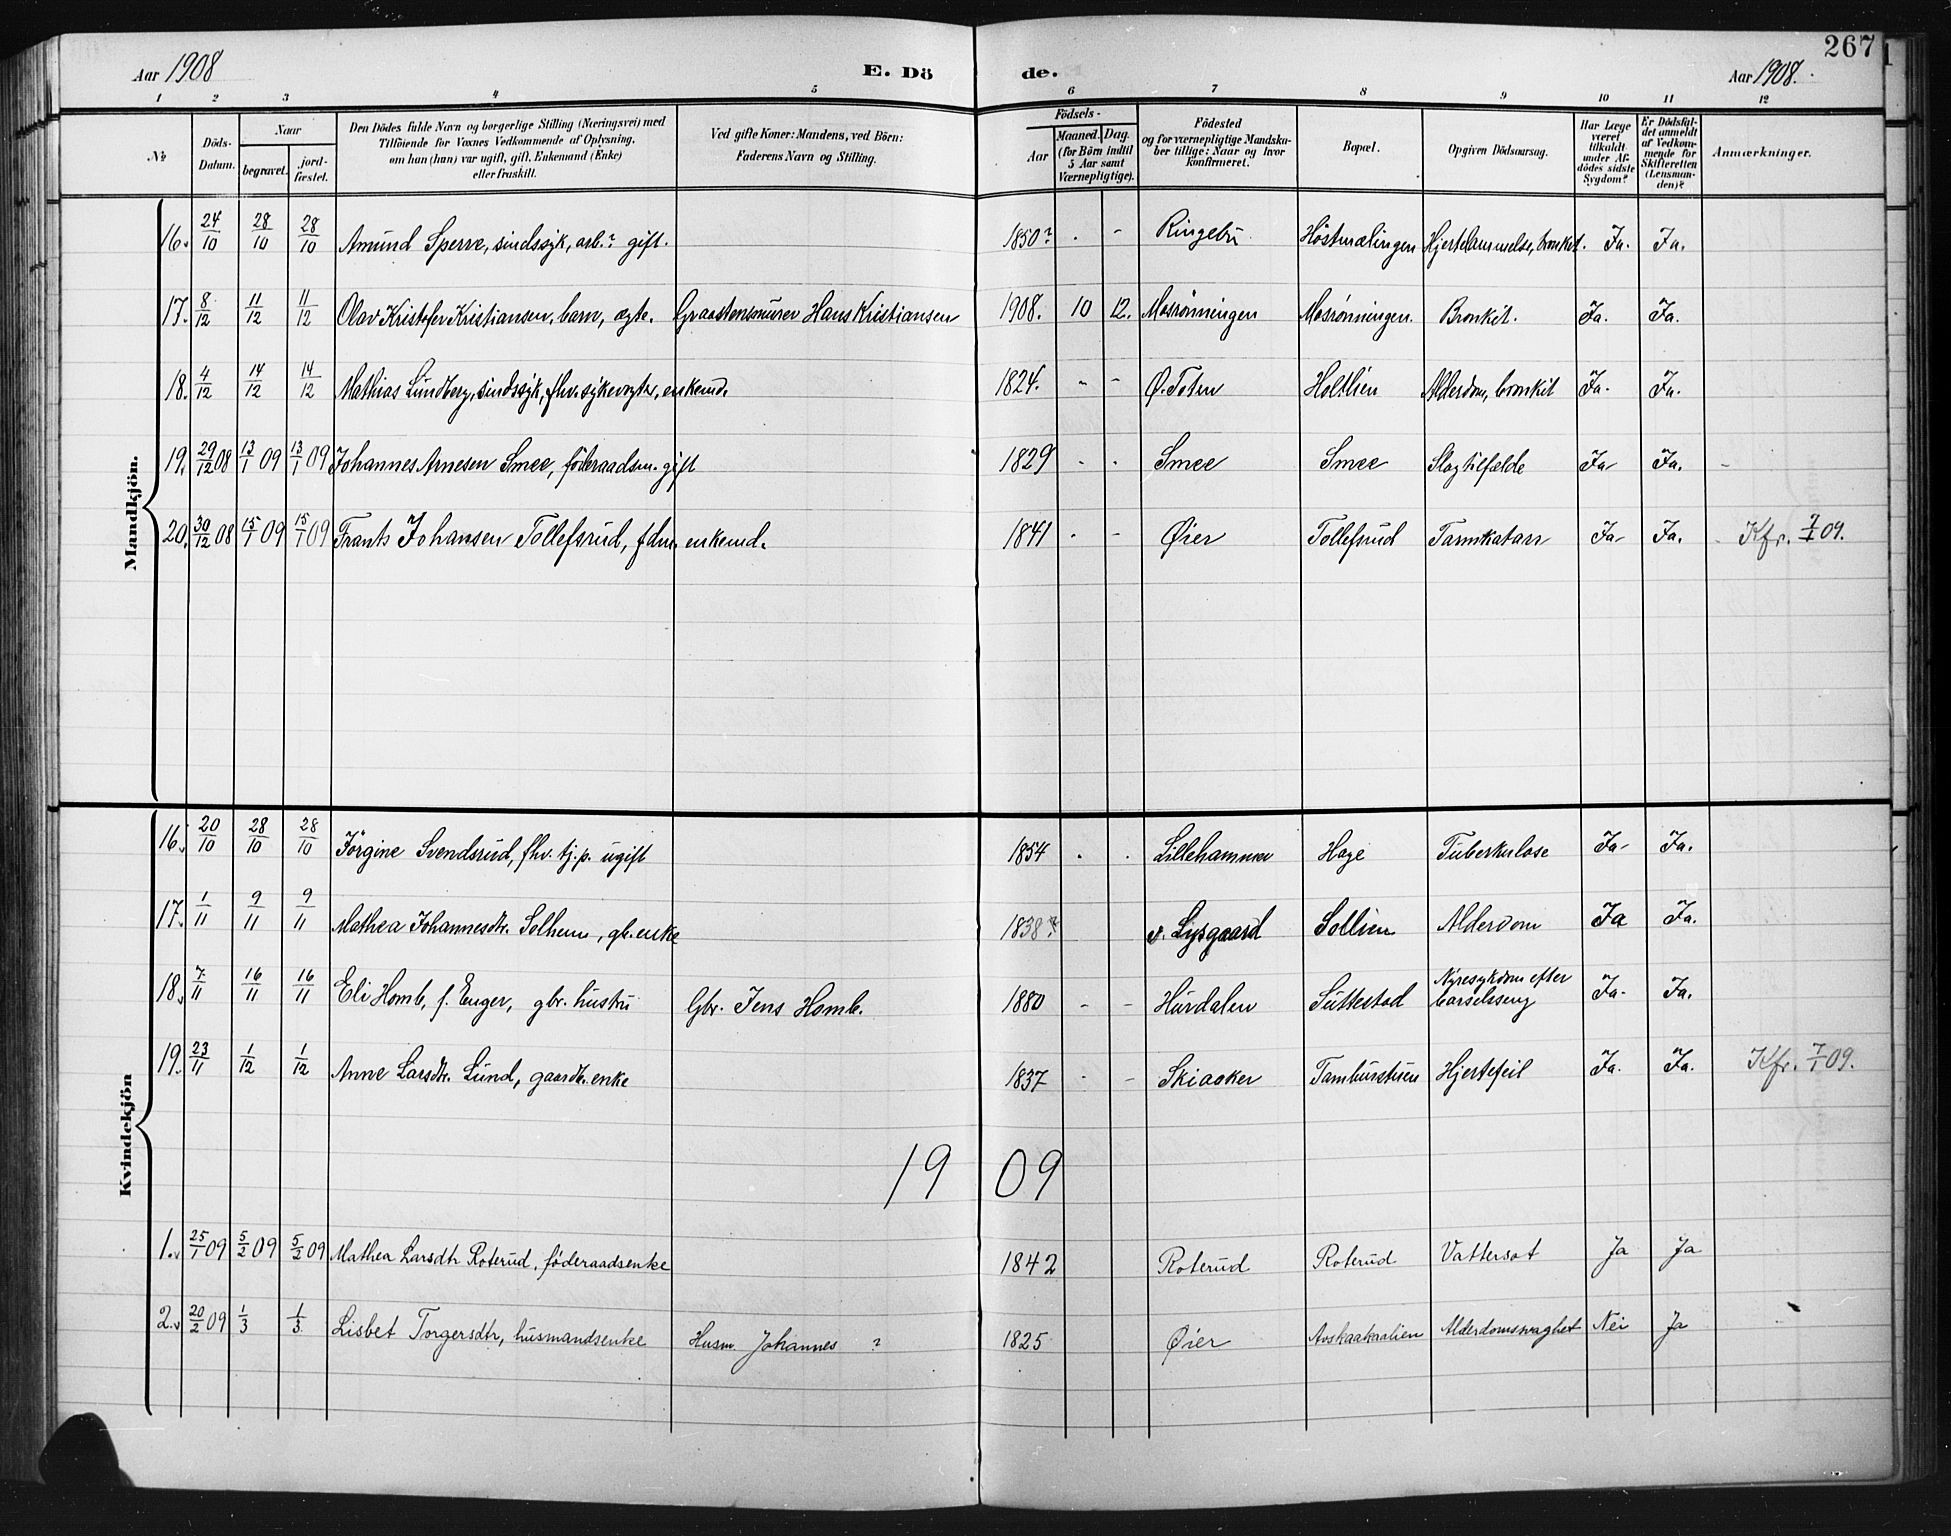 267
Aar 1908 E. Dö de. Aar 1908.
1 2 3 4 5 6 7 8 9 10 11 12
No.
Döds-Datum.
Naar begravet. jord-fæstet.
Den Dödes fulde Navn og borgerlige Stilling (Næringsvei) med
Tilföiende for Voxnes Vedkommende af Oplysning,
om han (hun) var ugift, gift, Enkemand (Enke)
eller fraskilt.
Ved gifte Koner: Mandens, ved Börn:
Faderens Navn og Stilling.
Födsels-
Aar Maaned. Dag.
(for Börn indtil
5 Aar samt
Værnepligtige).
Födested
og for værnepligtige Mandska-
ber tillige: Naar og hvor
Konfirmeret.
Bopæl.
Opgiven Dödsaarsag.
Har Læge
været
tilkaldt
under Af-
dödes sidste
Sygdom?
Er Dödsfal-
det anmeldt
af Vedkom-
mende for
Skifteretten
(Lensman-
den)?
Anmærkninger.
Mandkjön.
16. 24/10 28/10 28/10 Amund Sperre, sindssyk, arb.? gift. 1850? . - Ringebu Höstmælingen Hjertelammelse, bronkit. Ja. Ja.
17. 8/12 11/12 11/12 Olav Kristofer Kristiansen, barn, ægte. Graastensmurer Hans Kristiansen 1908. 10 12. Mosrønningen Mosrønningen. Bronkit. Ja. Ja.
18. 4/12 14/12 14/12 Mathias Lundberg, sindssyk, fhv. sykevogter, enkemd. 1824. - - Ø. Toten Holtlien Alderdom, bronkit Ja. Ja.
19. 29/12 08 13/1 09 13/1 09 Johannes Arnesen Smee, föderaadsm. gift 1829 - . Smee Smee Slagtilfælde Ja Ja. -
20. 30/12 08 15/1 09 15/1 09 Frants Johansen Tollefsrud, fdm. enkemd. 1841 . - Øier Tollefsrud Tarmkatarr Ja Ja. Kfr. 7/1 09.
Kvindekjön
16. 20/10 28/10 28/10 Jörgine Svendsrud, fhv. tj.p. ugift 1854 . . Lillehammer Hage Tuberkulose Ja Ja.
17. 1/11 9/11 9/11 Mathea Johannesdtr. Solhem, gb. enke 1838? v. Lysgaard Sollien Alderdom Ja Ja.
18. 7/11 16/11 16/11 Eli Homb, f. Enger, gbr. hustru Gbr. Jens Homb. 1880 - - Hurdalen Suttestad Nyresykdom efter
barselseng Ja. Ja.
19. 23/11 1/12 1/12 Anne Larsdtr. Lund, gaardb. enke 1837 . - Skiaaker Tamburstuen Hjertefeil Ja. Ja. Kfr. 7/1 09.
19 09
1. 25/1 09 5/2 09 5/2 09 Mathea Larsdtr Roterud, føderaadsenke 1842 Roterud Roterud Vattersot Ja Ja
2. 20/2 09 1/3 1/3 Lisbet Torgersdtr, husmandsenke Husm. Johannes ? 1825 Øier Avskaakaalien Alderdomsvaghet Nei Ja